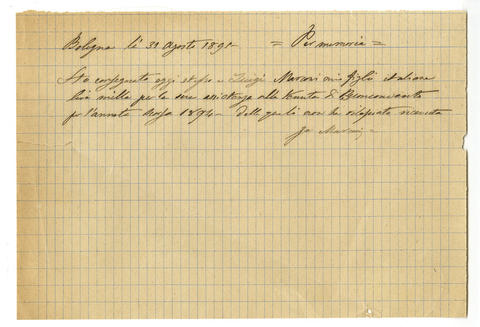 Bologna li 31 Agosto 1895 = Per memoria =
Ho consegnato oggi stesso a Luigi Marconi mio figlio italiane
lire mille per la sua assistenza alla tenuta di Buonconvento
per l'annata scorsa 1894 - delle quali non ha rilasciata ricevuta
Marconi